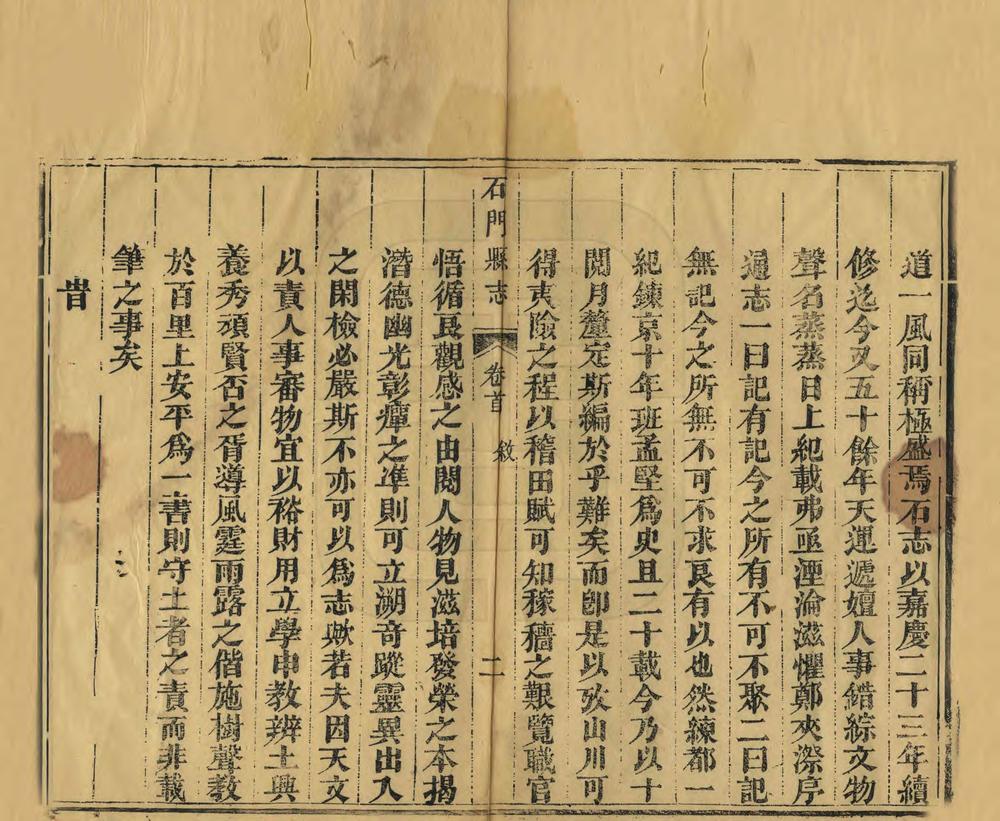 道一風同稱極盛焉石志以嘉慶二十三年續
修迄今又五十餘年天運遞嬗人事錯綜文物
聲名蒸蒸日上紀載弗亟湮淪滋懼鄭夾漈序
通志一曰記有記今之所有不可不聚二曰記
無記今之所無不可不求良有以也然練都一
紀鍊京十年班孟堅為史且二十載今乃以十
閱月釐定斯編於乎難矣而卽是以攷山川可
得夷險之程以稽田賦可知稼穡之艱覽職官
石門縣志 卷首 敘 二
悟循良觀感之由閱人物見滋培發榮之本揭
潛德幽光彰癉之準則可立溯奇蹤靈異出入
之閑檢必嚴斯不亦可以為志歟若夫因天文
以責人事審物宜以裕財用立學申教辨土興
養秀頑賢否之胥導風霆雨露之偕施樹聲教
於百里上安平為一書則守土者之責而非載
筆之事矣
旹